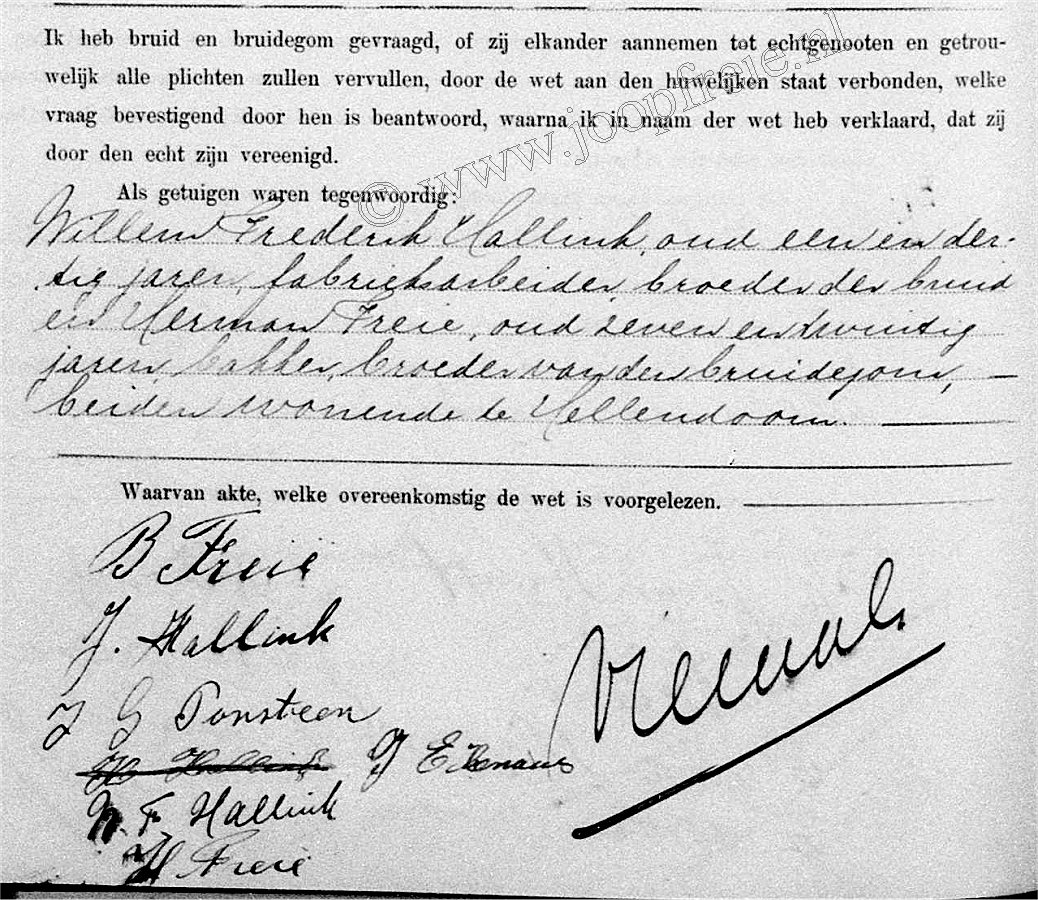 Ik heb bruid en bruidegom gevraagd, of zij elkander aannemen tot echtgenooten en getrou-
welijk alle plichten zullen vervullen, door de wet aan den huwelijken staat verbonden, welke
vraag bevestigend door hen is beantwoord, waarna ik in naam der wet heb verklaard, dat zij
door den echt zijn vereenigd.
© www.joopfreie.nl
Als getuigen waren tegenwoordig:
Willem Frederik Hallink, oud een en der-
tig jaren, fabrieksarbeider, broeder der bruid
en Herman Freie, oud zeven en twintig
jaren, bakker, broeder van den bruidegom,
beiden wonende te Hellendoorn.
Waarvan akte, welke overeenkomstig de wet is voorgelezen.
B Freie
J. Hallink
J G Ponsteen
J E
W. F. Hallink
H Freie